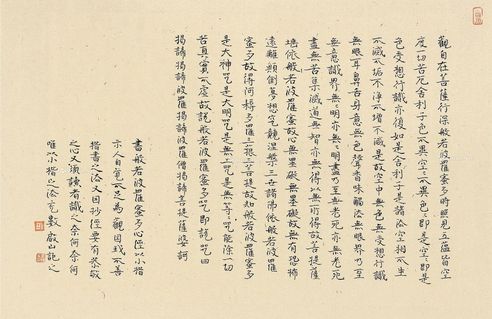 觀自在菩薩行深般若波羅蜜多時照見五蘊皆空
度一切苦厄舍利子色不異空〻不異色〻即是空〻即是
色受想行識亦復如是舍利子是諸法空相不生
不滅不垢不淨不增不減是故空中無色無受想行識
無眼耳鼻舌身意無色聲香味觸法無眼界乃至
無意識界無〻明亦無〻明盡乃至無老死亦無老死
盡無苦集滅道無智亦無得以無所得故菩提薩
埵依般若波羅蜜多故心無罣礙無罣礙故無有恐怖
遠離顛倒夢想究竟涅槃三世諸佛依般若波羅
蜜多故得阿耨多羅三藐三菩提故知般若波羅蜜多
是大神咒是大明咒是無上咒是無等〻咒能除一切
苦真實不虛故說般若波羅蜜多咒即說咒曰
揭諦揭諦波羅揭諦波羅僧揭諦菩提薩婆訶
書般若波羅蜜多心經以小楷
示人自覺不足為觀因我不善
楷書之法又因抄經要有恭敬
之心又須讀者識之奈何奈何
唯以小楷之法充數啟山記之